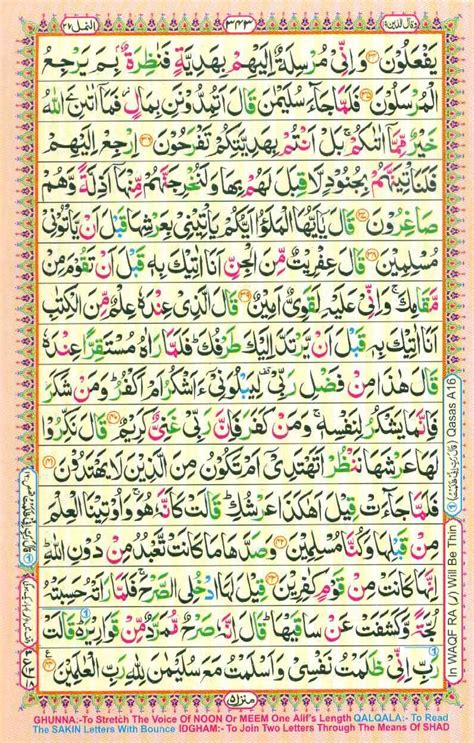 وَقَالَ الَّذِیْنَ ۱۹ ۳۴۳ اَلنَّمْل ۲۷
یَفْعَلُوْنَ ﴿۳۴﴾ وَاِنِّیْ مُرْسِلَةٌ اِلَیْهِمْ بِهَدِیَّةٍ فَنٰظِرَةٌۢ بِمَ یَرْجِعُ
الْمُرْسَلُوْنَ ﴿۳۵﴾ فَلَمَّا جَآءَ سُلَیْمٰنَ قَالَ اَتُمِدُّوْنَنِ بِمَالٍ فَمَاۤ اٰتٰىنِۦَ اللّٰهُ
خَیْرٌ مِّمَّاۤ اٰتٰىكُمْ ۚ بَلْ اَنْتُمْ بِهَدِیَّتِكُمْ تَفْرَحُوْنَ ﴿۳۶﴾ اِرْجِعْ اِلَیْهِمْ
فَلَنَاْتِیَنَّهُمْ بِجُنُوْدٍ لَّا قِبَلَ لَهُمْ بِهَا وَلَنُخْرِجَنَّهُمْ مِّنْهَاۤ اَذِلَّةً وَّهُمْ
صٰغِرُوْنَ ﴿۳۷﴾ قَالَ یٰۤاَیُّهَا الْمَلَؤُا اَیُّكُمْ یَاْتِیْنِیْ بِعَرْشِهَا قَبْلَ اَنْ یَّاْتُوْنِیْ
مُسْلِمِیْنَ ﴿۳۸﴾ قَالَ عِفْرِیْتٌ مِّنَ الْجِنِّ اَنَا اٰتِیْكَ بِهٖ قَبْلَ اَنْ تَقُوْمَ مِنْ
مَّقَامِكَ ۚ وَاِنِّیْ عَلَیْهِ لَقَوِیٌّ اَمِیْنٌ ﴿۳۹﴾ قَالَ الَّذِیْ عِنْدَهٗ عِلْمٌ مِّنَ الْكِتٰبِ
اَنَا اٰتِیْكَ بِهٖ قَبْلَ اَنْ یَّرْتَدَّ اِلَیْكَ طَرْفُكَ ؕ فَلَمَّا رَاٰهُ مُسْتَقِرًّا عِنْدَهٗ
قَالَ هٰذَا مِنْ فَضْلِ رَبِّیْ ۖ لِیَبْلُوَنِیْۤ ءَاَشْكُرُ اَمْ اَكْفُرُ ؕ وَمَنْ شَكَرَ
فَاِنَّمَا یَشْكُرُ لِنَفْسِهٖ ۚ وَمَنْ كَفَرَ فَاِنَّ رَبِّیْ غَنِیٌّ كَرِیْمٌ ﴿۴۰﴾ قَالَ نَكِّرُوْا
لَهَا عَرْشَهَا نَنْظُرْ اَتَهْتَدِیْۤ اَمْ تَكُوْنُ مِنَ الَّذِیْنَ لَا یَهْتَدُوْنَ ﴿۴۱﴾
فَلَمَّا جَآءَتْ قِیْلَ اَهٰكَذَا عَرْشُكِ ؕ قَالَتْ كَاَنَّهٗ هُوَ ۚ وَاُوْتِیْنَا الْعِلْمَ
مِنْ قَبْلِهَا وَكُنَّا مُسْلِمِیْنَ ﴿۴۲﴾ وَصَدَّهَا مَا كَانَتْ تَّعْبُدُ مِنْ دُوْنِ اللّٰهِ ؕ
اِنَّهَا كَانَتْ مِنْ قَوْمٍ كٰفِرِیْنَ ﴿۴۳﴾ قِیْلَ لَهَا ادْخُلِی الصَّرْحَ ۚ فَلَمَّا رَاَتْهُ حَسِبَتْهُ
لُجَّةً وَّكَشَفَتْ عَنْ سَاقَیْهَا ؕ قَالَ اِنَّهٗ صَرْحٌ مُّمَرَّدٌ مِّنْ قَوَارِیْرَ ؕ۬ قَالَتْ
رَبِّ اِنِّیْ ظَلَمْتُ نَفْسِیْ وَاَسْلَمْتُ مَعَ سُلَیْمٰنَ لِلّٰهِ رَبِّ الْعٰلَمِیْنَ ﴿۴۴﴾
منزل ۵
In WAQF RA (ر) Will Be Thin Qasas A16
GHUNNA:-To Stretch The Voice Of NOON Or MEEM One Alif's Length QALQALA:- To Read
The SAKIN Letters With Bounce IDGHAM:- To Join Two Letters Through The Means Of SHAD